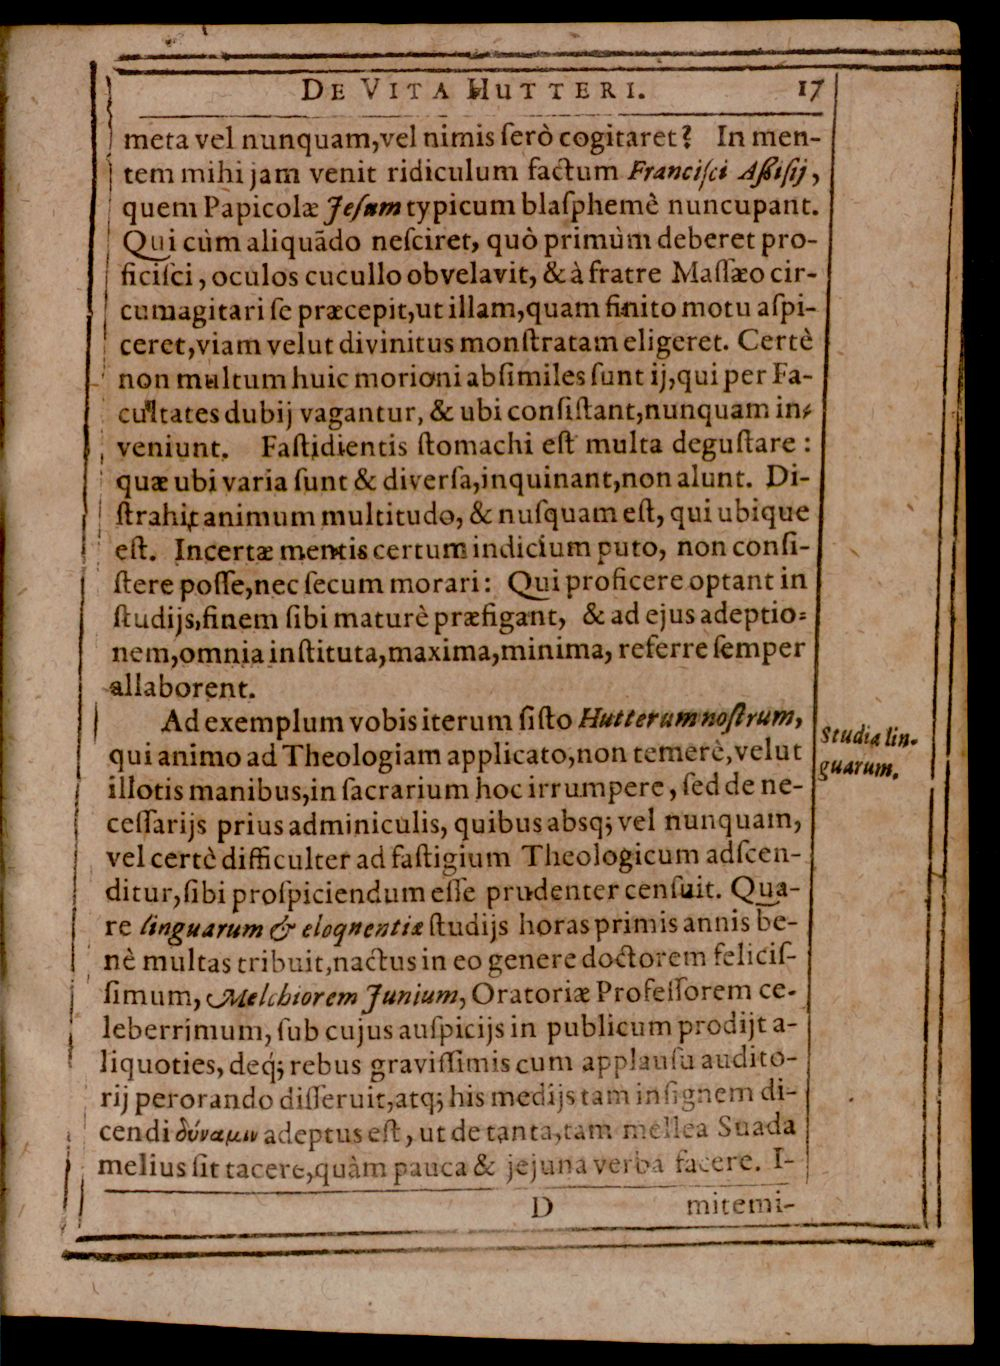 DE VITA HUTTERI. 17
meta vel nunquam, vel nimis ſerò cogitaret? In men-
tem mihi jam venit ridiculum factum Franciſci Aſſiſij,
quem Papicolæ Jeſum typicum blaſphemè nuncupant.
Qui cùm aliquãdo neſciret, quò primùm deberet pro-
ficiſci, oculos cucullo obvelavit, & à fratre Maſſæo cir-
cumagitari ſe præcepit, ut illam, quam finito motu aſpi-
ceret, viam velut divinitus monſtratam eligeret. Certè
non multum huic morioni abſimiles ſunt ij, qui per Fa-
cultates dubij vagantur, & ubi conſiſtant, nunquam in-
veniunt. Faſtidientis ſtomachi eſt multa deguſtare:
quæ ubi varia ſunt & diverſa, inquinant, non alunt. Di-
ſtrahit animum multitudo, & nuſquam eſt, qui ubique
eſt. Incertæ mentis certum indicium puto, non conſi-
ſtere poſſe, nec ſecum morari: Qui proficere optant in
ſtudijs, finem ſibi maturè præfigant, & ad ejus adeptio-
nem, omnia inſtituta, maxima, minima, referre ſemper
allaborent.
Ad exemplum vobis iterum ſiſto Hutterum noſtrum,
qui animo ad Theologiam applicato, non temerè, velut
illotis manibus, in ſacrarium hoc irrumpere, ſed de ne-
ceſſarijs prius adminiculis, quibus absq; vel nunquam,
vel certè difficulter ad faſtigium Theologicum adſcen-
ditur, ſibi proſpiciendum eſſe prudenter cenſuit. Qua-
re linguarum & eloqnentiæ ſtudijs horas primis annis be-
nè multas tribuit, nactus in eo genere doctorem feliciſ-
ſimum, Melchiorem Junium, Oratoriæ Profeſſorem ce-
leberrimum, ſub cujus auſpicijs in publicum prodijt a-
liquoties, deq́; rebus graviſſimis cum applauſu audito-
rij perorando diſſeruit, atq; his medijs tam inſignem di-
cendi δύναμιν adeptus eſt, ut de tanta, tam mellea Suada
melius ſit tacere, quàm pauca & jejuna verba facere. I-
D mitemi-
Studia lin-
guarum.